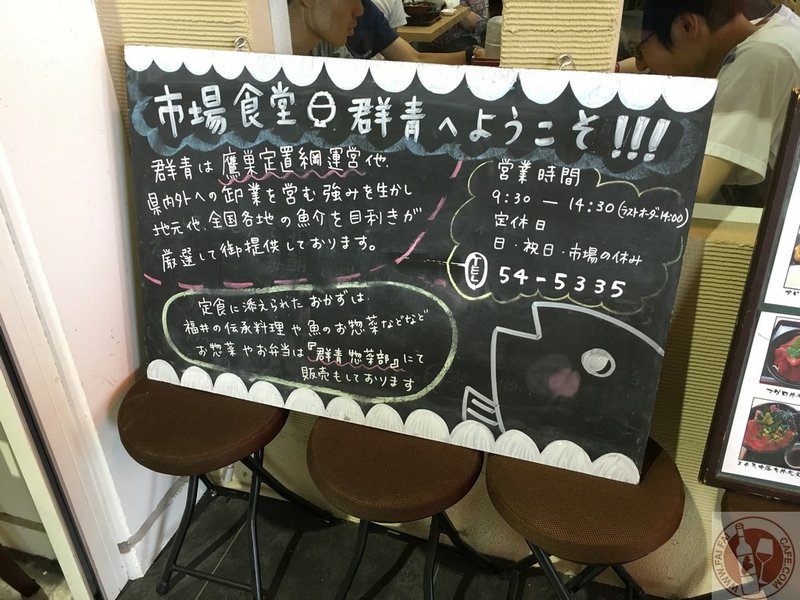 市場食堂 群青へようこそ!!!
群青は鷹巣定置網運営他、
県内外への卸業を営む強みを生かし
地元他、全国各地の魚介を目利きが
厳選して御提供しております。
営業時間
9:30 ― 14:30(ラストオーダー14:00)
定休日
日・祝日・市場の休み
TEL 54-5335
定食に添えられたおかずは、
福井の伝承料理や魚のお惣菜などなど
お惣菜やお弁当は『群青惣菜部』にて
販売もしております
WWW.FAIFAICAFE.COM